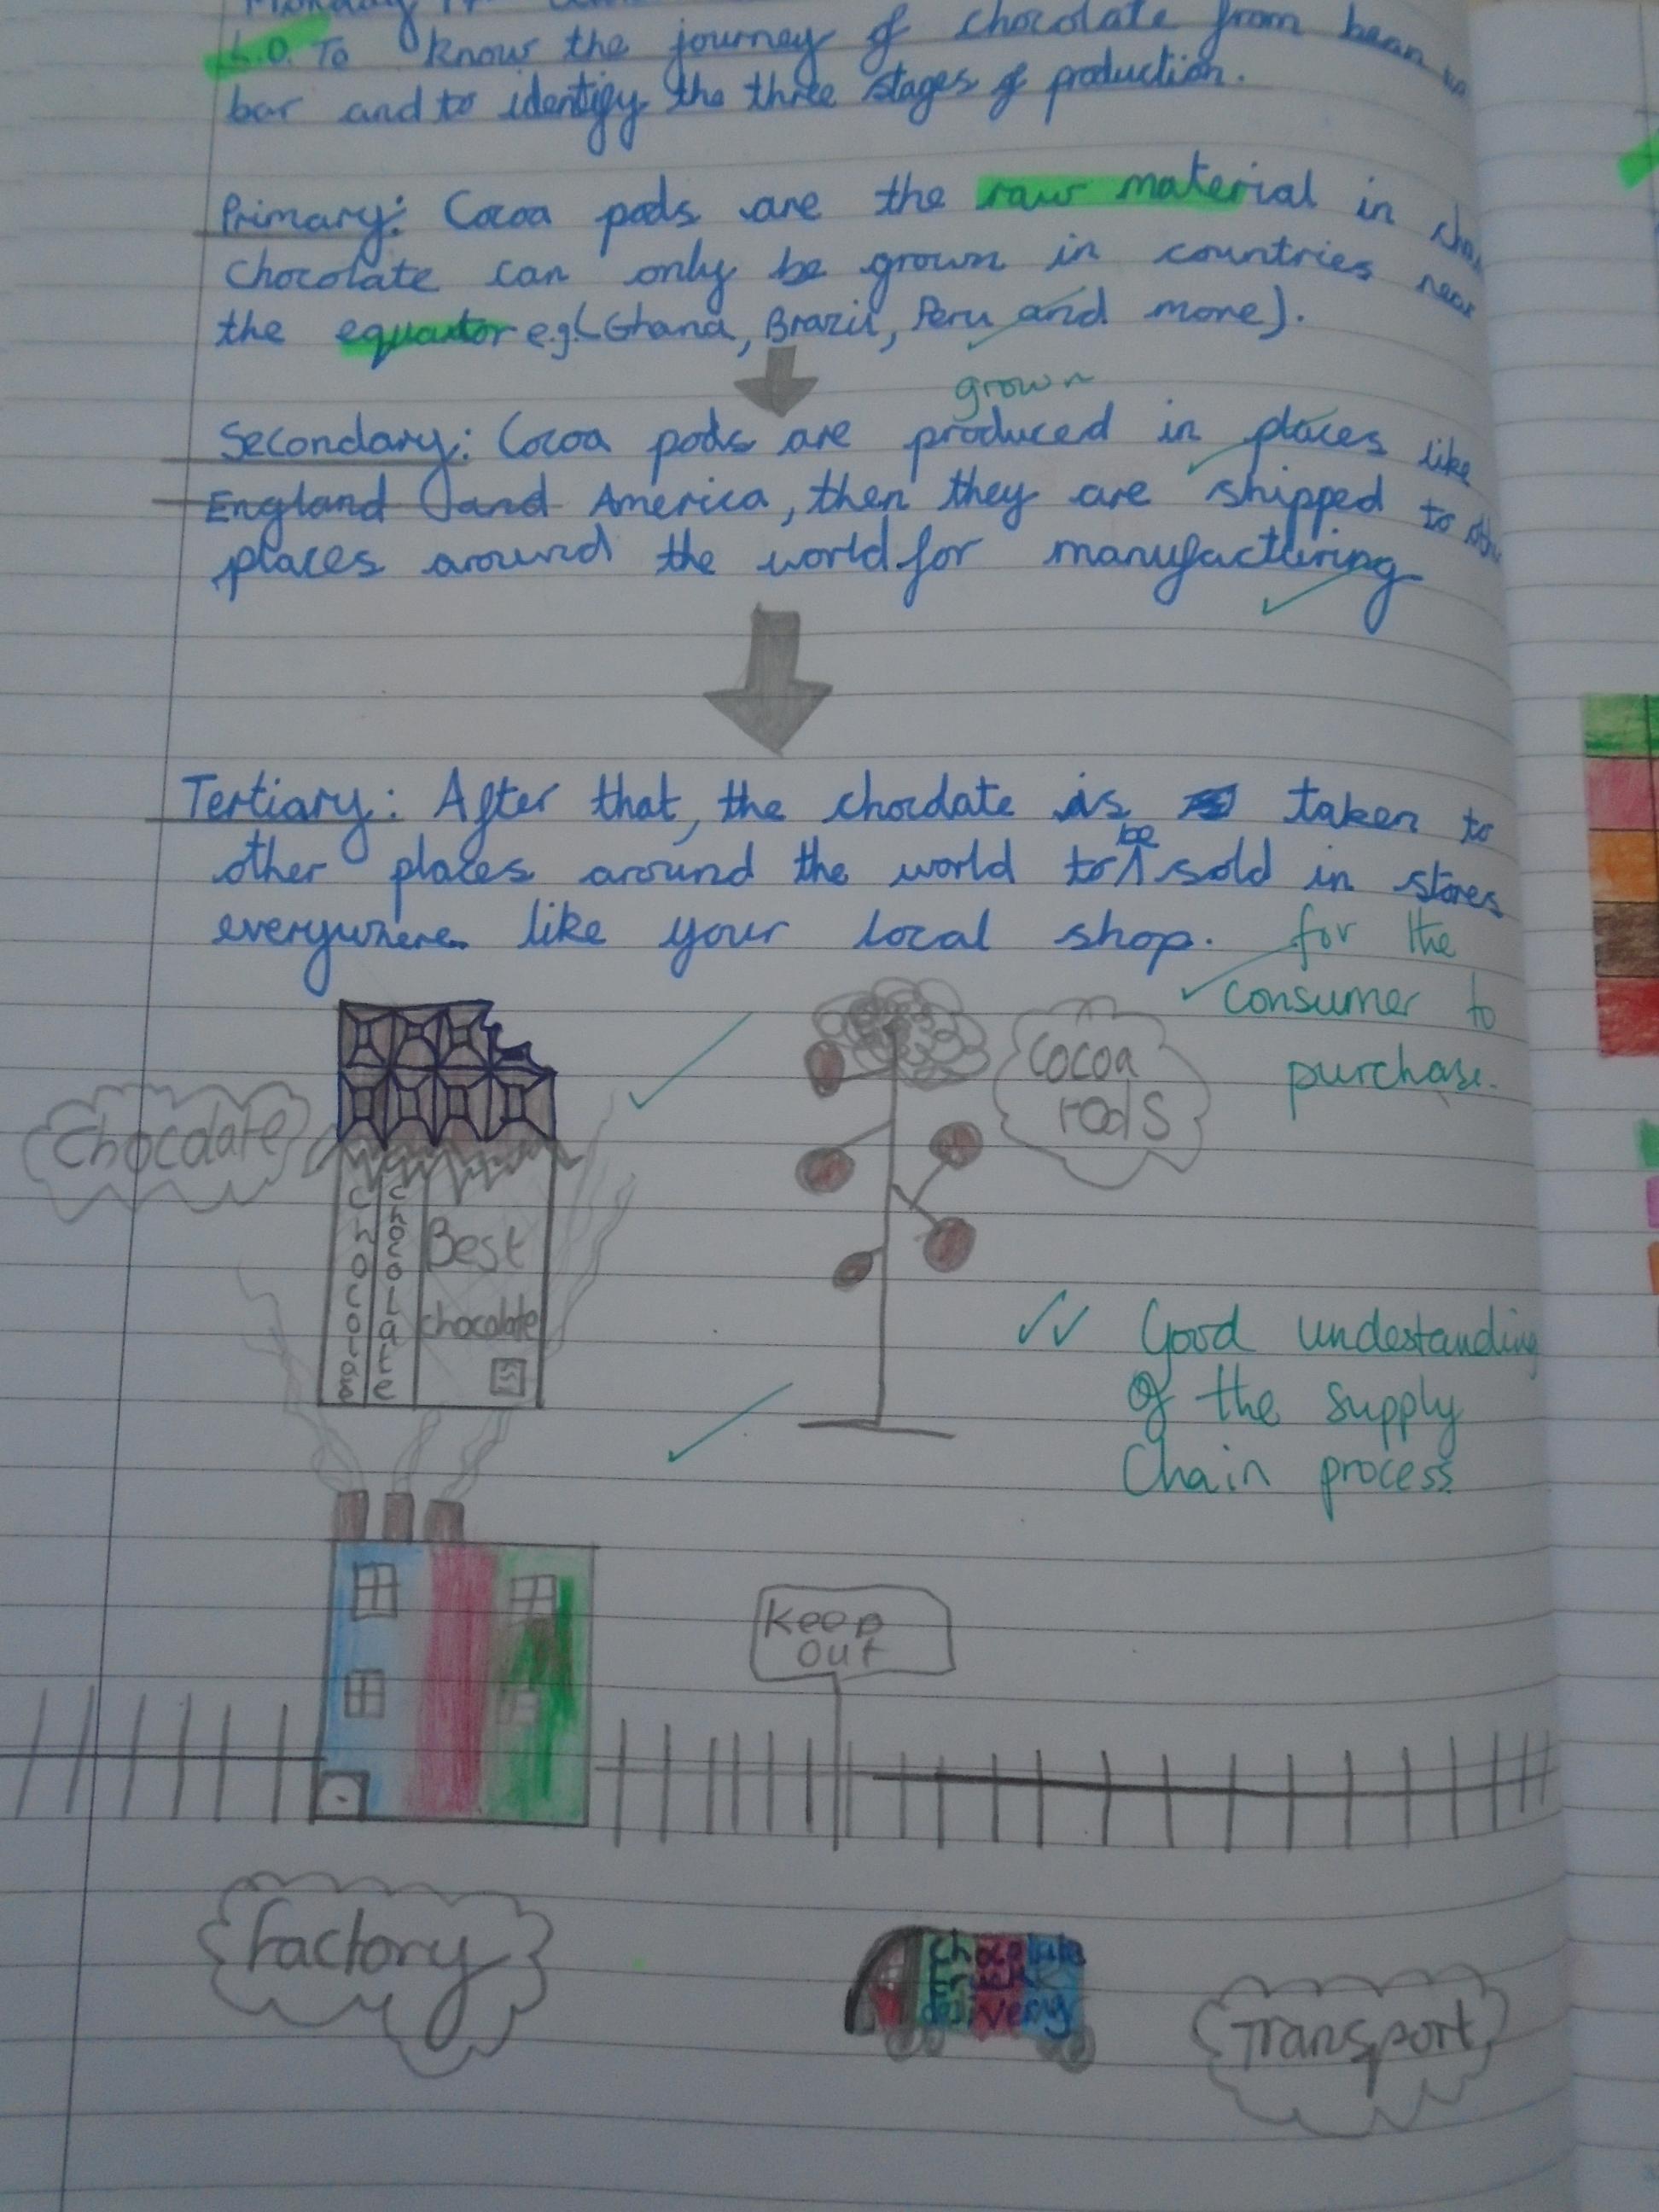 L.O. To know the journey of chocolate from bean to
bar and to identify the three stages of production.
Primary: Cocoa pods are the raw material in
chocolate can only be grown in countries near
the equator e.g. (Ghana, Brazil, Peru and more).
grown
Secondary: Cocoa pods are produced in places like
England and America, then they are shipped to
places around the world for manufacturing
Tertiary: After that, the chocolate is taken to
be
other places around the world to sold in stores
everywhere like your local shop. for the
consumer to
purchase.
Chocolate
Cocoa
rods
Chocolate
Chocolate
Best
chocolate
Good undestanding
of the supply
Chain process
Keep
out
Factory
Chocolate
truck
delivery
Transport